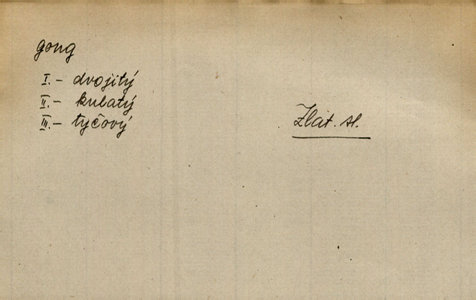 gong
I. – dvojitý
II. – kulatý
III. – tyčový
Zlat. sl.